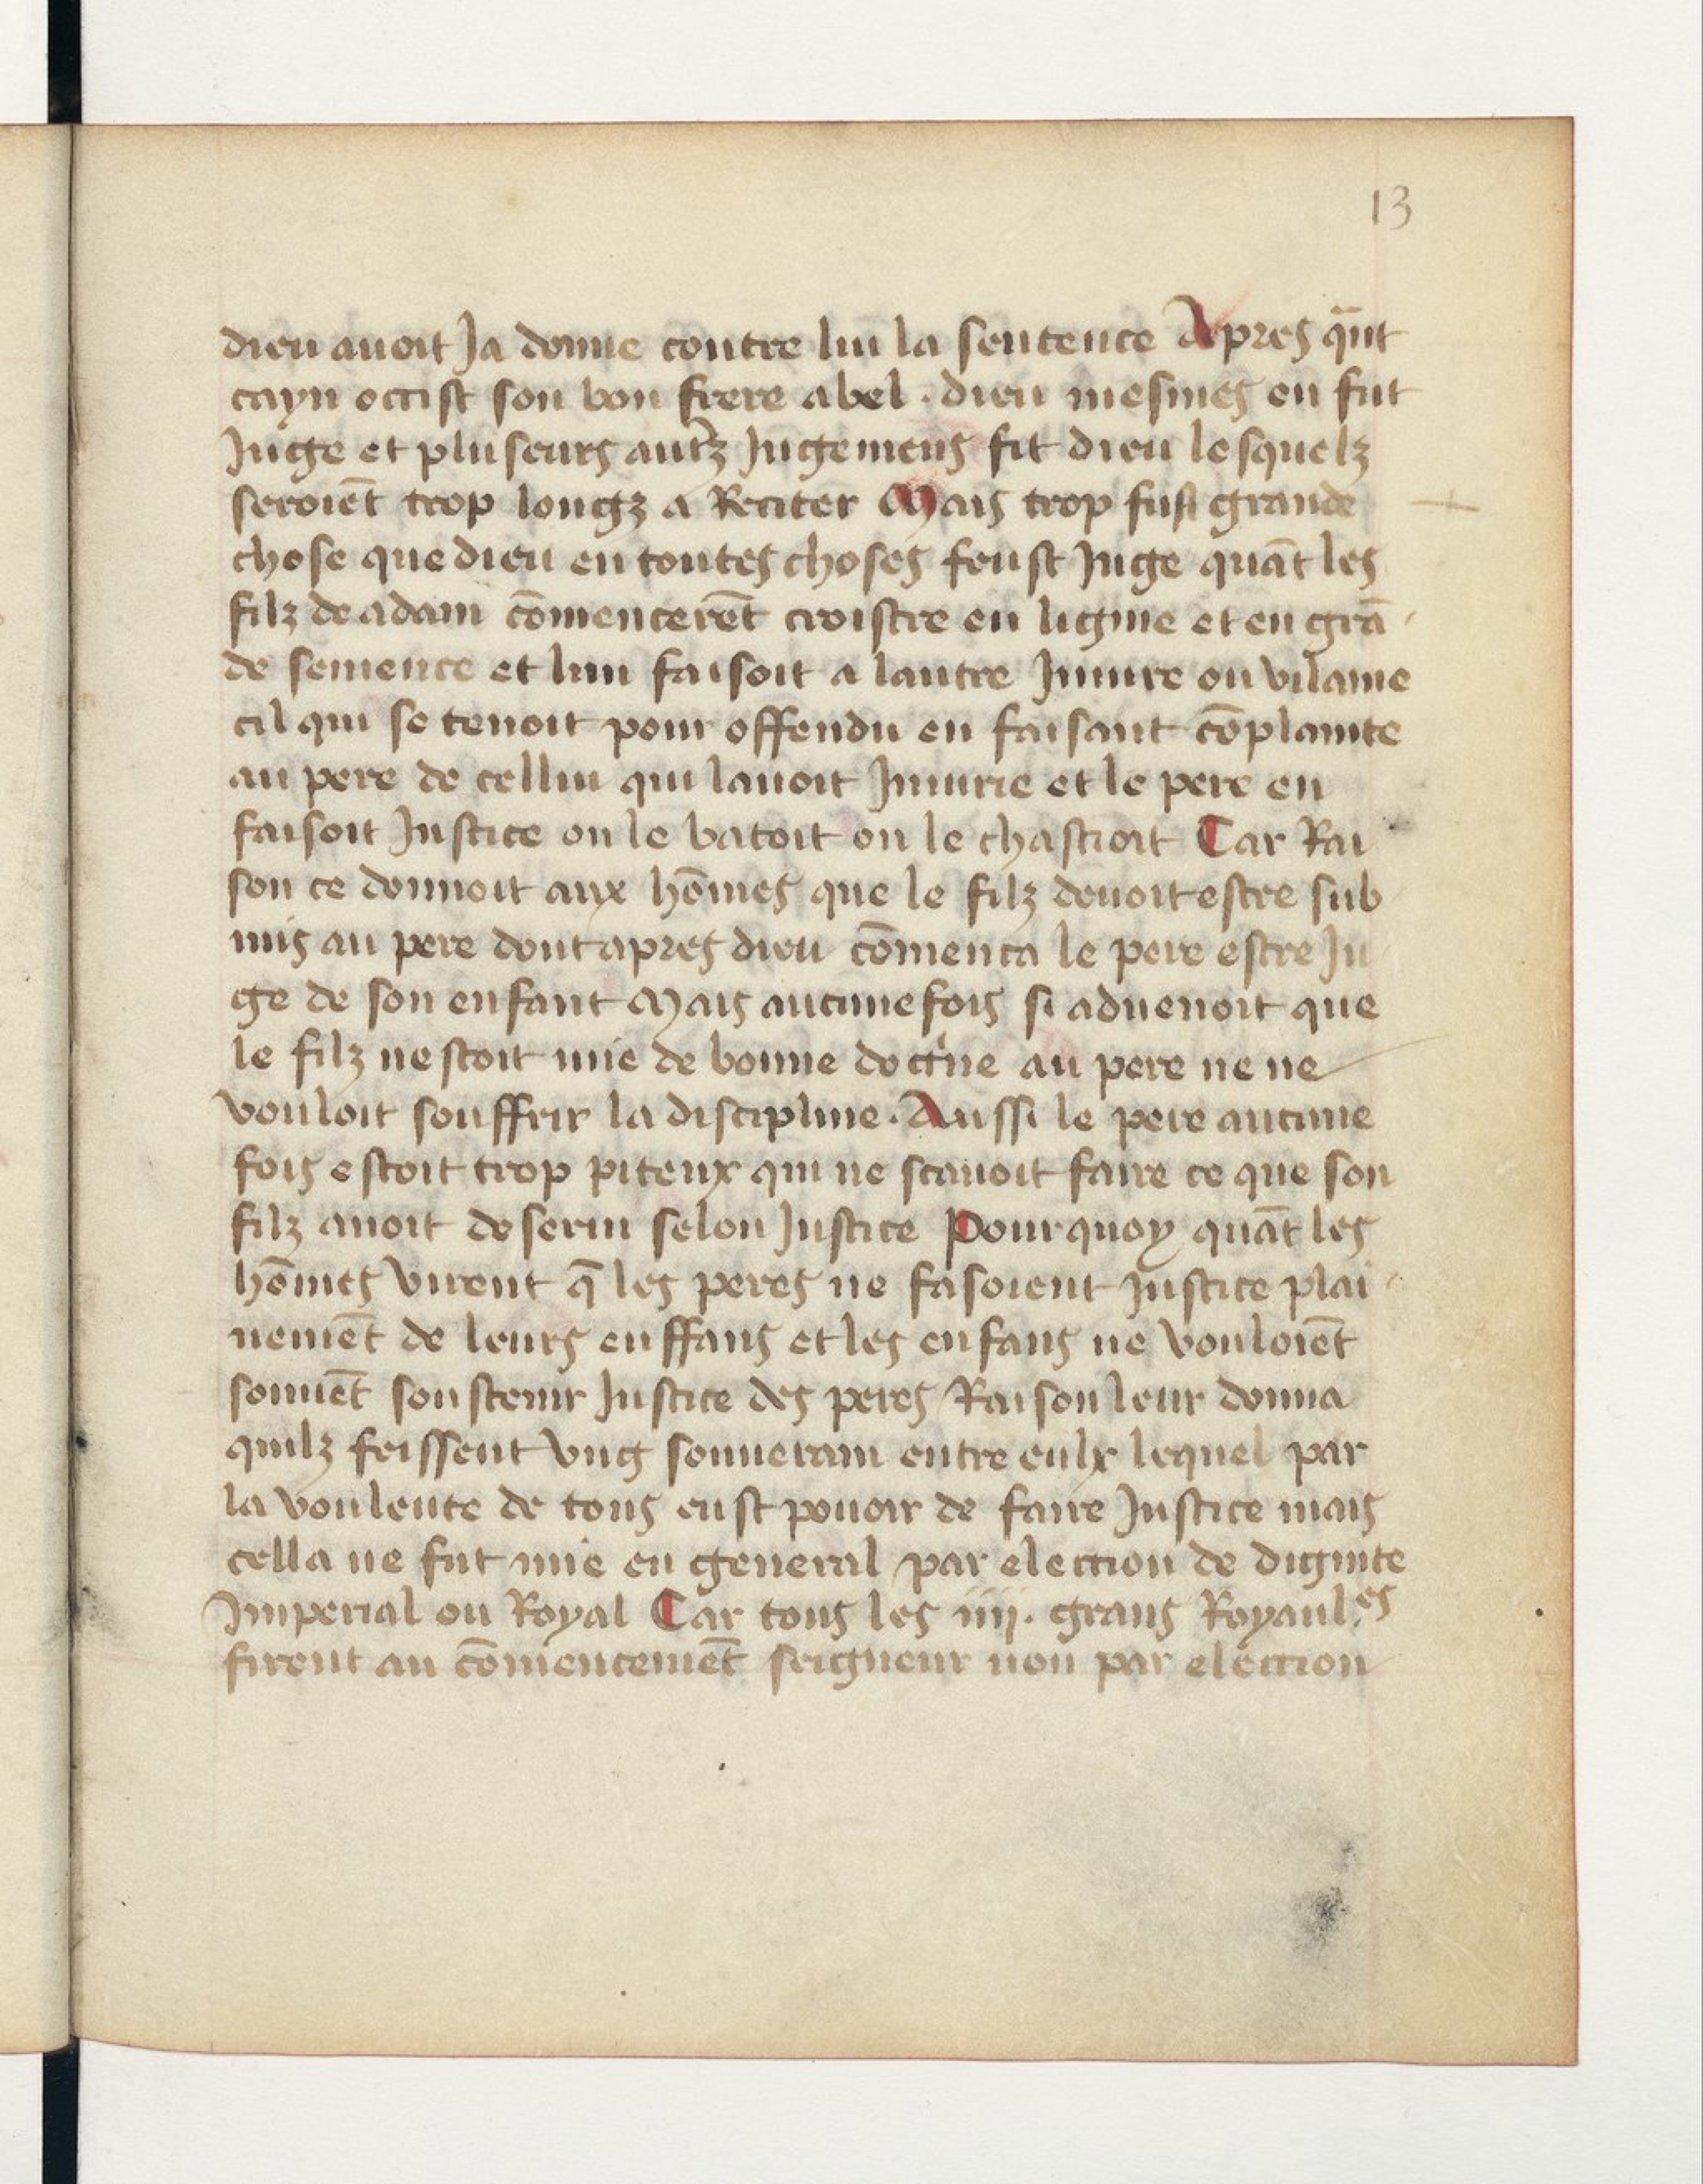 13
dieu auoit Ja donne contre lui la sentence Apres qūt
cayn occist son bon frere abel . dieu mesmes en fut
Juge et pluseurs autrz Jugemens fit dieu lesquelz
seroiēt trop longz a Reciter Mais trop fust grande
chose que dieu en toutes choses feust Juge quāt les
filz de adam cōmencerēt croistre en ligne et en grā
de semence et lun faisoit a lautre Iniure ou vilanie
cil qui se tenoit pour offendu en faisant cōplainte
au pere de cellui qui lauoit Iniurie et le pere en
faisoit Justice ou le batoit ou le chastioit Car Rai
son ce donnoit aux hōmes que le filz deuoit estre sub
mis au pere dont apres dieu cōmenca le pere estre Ju
ge de son enfant Mais aucunefois si aduenoit que
le filz nestoit mie de bonne doctⁱne au pere ne ne
vouloit souffrir la discipline . Aussi le pere aucune
fois estoit trop piteux qui ne scauoit faire ce que son
filz auoit deserui selon Justice Pourquoy quāt les
hōmes virent q̄ les peres ne fasoient Justice plai
nemēt de leurs enffans et les enfans ne vouloiēt
souuēt soustenir Justice des peres Raison leur donna
quilz feissent vng souuerain entre eulx lequel par
la voulente de tous eust pouoir de faire Justice mais
cella ne fut mie en general par election de dignite
Imperial ou Royal Car tous les iiij. grans Royaules
firent au cōmencemēt seigneur non par election